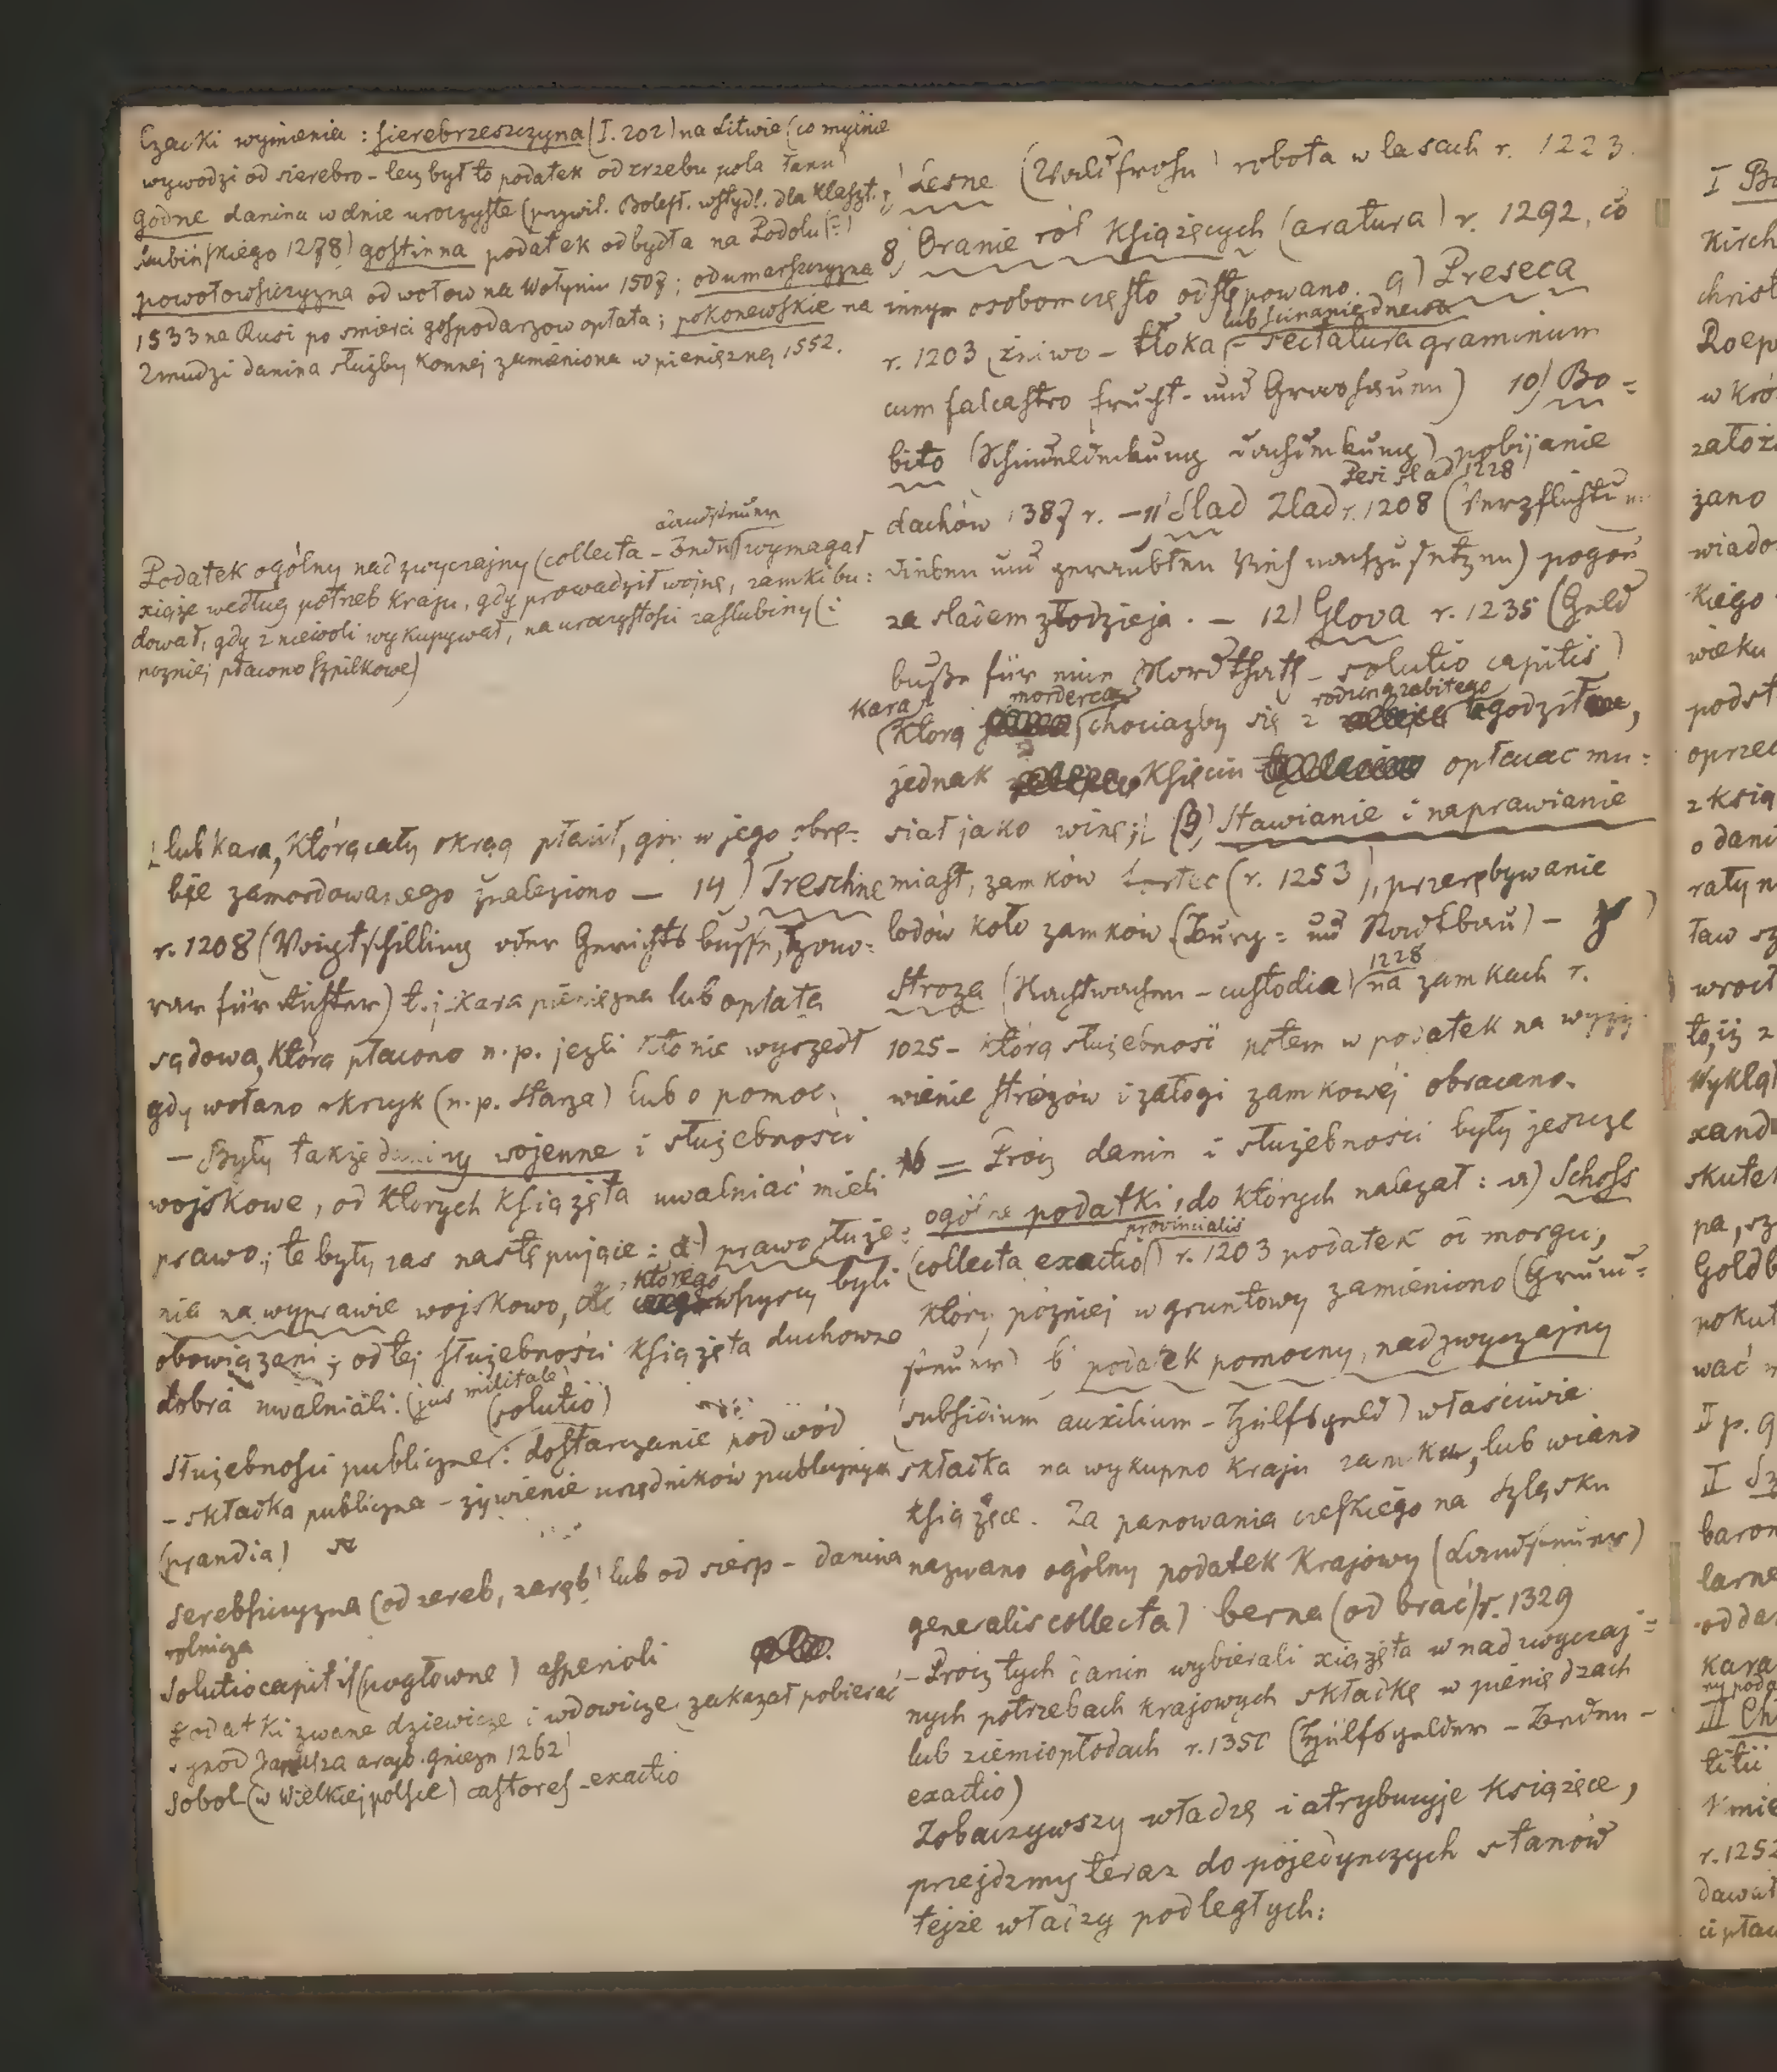 Czacki wymienia : sierebrzeszczyna (I. 202) na Litwie (co mylnie
wywodzi od sierebro - lecz był to podatek od zrzebu pola łanu)
godne danina w dnie uroczyste (przywil. Bolesł. wstydl. dla klaszt.
Lubińskiego 1278) gostinna podatek od bydła na Podolu (?)
powołowszczyzna od wołow na Wołyniu 1507; odumarszczyzna
1533 na Rusi po smierci gospodarzow opłata; pokonewskie na
Zmudzi danina służby konnej zamieniona w pienięzną 1552.
Landsteuer
Podatek ogólny nadzwyczajny (collecta - wymagał
xiąże według potrzeb kraju, gdy prowadził wojnę, zamki bu=
dował, gdy z niewoli wykupywał, na uroczystości zaslubiny (i
pozniej płacono szpilkowe)
lub kara, którą cały okrąg płacił, gdy w jego obrę=
bie zamordowanego znaleziono — 14) Treschne
r. 1208 (Voigtschilling oder Gerichtsbusse, Hono=
rar für Richter) t.j. kara pienięzna lub opłata
sądowa, którą płacono n.p. jezli kto nie wyszedł
gdy wołano okrzyk (n.p. Starza) lub o pomoc.
— Były także daniny wojenne i służebności
wojskowe, od ktorych książęta uwalniać mieli
prawo; te były zas następujące : a) prawo służe=
nia na wyprawie wojskowo, do którego wszyscy byli
obowiązani; od tej służebności książęta duchowne
dobra uwalniali. (jus militale)
(solutio)
Służebności publiczne: dostarczanie podwód
- składka publiczna - żywienie urzędników publicznych
(prandia)
Serebszczyzna (od zereb, zaręb) lub od sierp - danina
rolnicza
Solutio capitis (pogłowne) asperioli
podatki zwane dziewicze i wdowicze zakazał pobierać
synod Janusza arcyb. gniezn 1262
Sobol (w Wielkiej polsce) castores - exactio
7) Lesne (Waldfrohn) robota w lasach r. 1223.
8) Oranie ról książęcych (aratura) r. 1292, co
innym osobom często odstępowano. 9) Preseca
lub scinanie drzewa
r. 1203 (żniwo - tłoka - sectatura graminum
cum falcastro Frucht- und Grashauen) 10) Po=
bito (Schindeldeckung Dachdeckung) pobijanie
Pesi slad 1228
dachów 1387 r. - 11) Slad Zlad r. 1208 (Verpflichtung
Dieben und geraubten Vieh nachzusetzen) pogoń
za sladem złodzieja. — 12) Glova r. 1235 (Geld
busze für eine Mordthath - solutio capitis)
kara morderca rodziną zabitego
(którą chociazby się z ugodził,
jednak Księciu opłacac mu=
siał jako winę; 13) Stawianie i naprawianie
miast, zamków fortec (r. 1253), przerębywanie
lodów koło zamków (Burg= und Stadtbau) —
1228
Stroza (Nachtwachen - custodia) na zamkach r.
1025 - którą służebność potem w podatek na wyży
wienie stróżów i załogi zamkowéj obracano.
= Prócz danin i służebności były jeszcze
ogólne podatki, do których nalezał : a) Schoss
provincialis
(collecta exactio) r. 1203 podatek od morgu,
który później w gruntowy zamieniono (Grund=
steuer) b) podatek pomocny, nadzwyczajny
(subsidium auxilium - Hülfsgeld) właściwie
składka na wykupno kraju zamku, lub wiano
książęce. Za panowania czeskiego na Szląsku
nazwano ogólny podatek Krajowy (Landsteuer)
generalis collecta) berna (od brać) r. 1329
- Prócz tych danin wybierali xiążęta w nadzwyczaj=
nych potrzebach krajowych składkę w pieniędzach
lub ziemiopłodach r. 135 (Hülfsgelder - Beden -
exactio)
Zobaczywszy władzę i atrybucyje Książęce,
przejdzmy teraz do pojedynczych stanów
tejże władzy podległych:
Kirch
christ
Roep
w kró
założ
żano
wiado
kiego
wieku
podst
oprze
z ksią
o dani
raty n
ław sz
wrocł
to, iż z
Wyklą
xand
skute
pa, sz
Goldb
pokut
wać
II p. 9
II Sz
baron
larne
od da
kara
III Ch
titii
kmie
r. 1252
dawał
ci płac